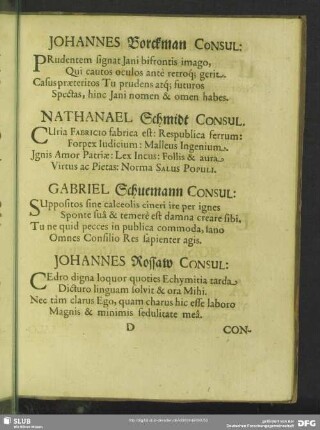 JOHANNES Borckman CONSUL:
PRudentem signat Jani bifrontis imago,
Qui cautos oculos ante retroq; gerit.
Casus præteritos Tu prudens atq; futuros
Spectas, hinc Jani nomen & omen habes.
NATHANAEL Schmidt CONSUL.
CUria FABRICIO fabrica est: Respublica ferrum:
Forpex Iudicium: Malleus Ingenium.
Ignis Amor Patriæ: Lex Incus: Follis & aura
Virtus ac Pietas: Norma SALUS POPULI.
GABRIEL Schuemann CONSUL:
SUppositos sine calceolis cineri ite per ignes
Sponte suâ & temerè est damna creare sibi,
Tu ne quid pecces in publica commoda, sano
Omnes Consilio Res sapienter agis.
JOHANNES Rossaw CONSUL:
CEdro digna loquor quoties Echymitia tarda
Dicturo linguam solvit & ora Mihi.
Nec tàm clarus Ego, quam charus hic esse laboro
Magnis & minimis sedulitate meâ.
D CON-
SLUB
DFG